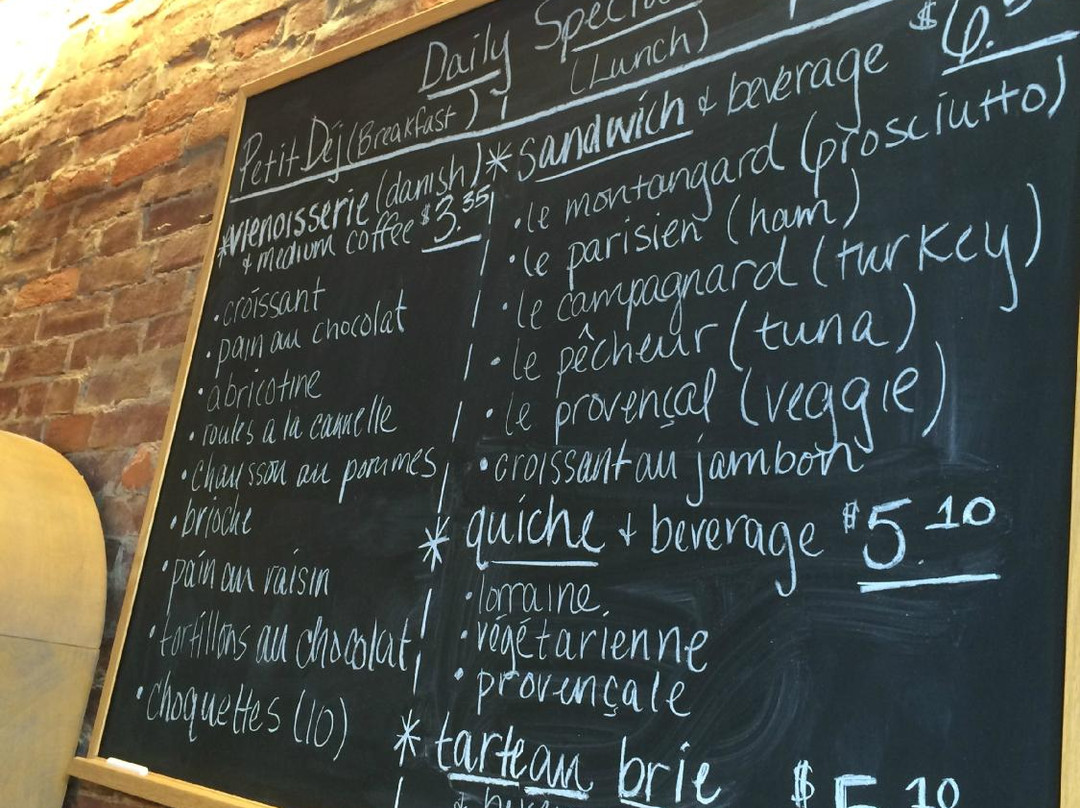 Daily
(Lunch)
Petit Déj (Breakfast)
*vienoisserie (danish)
+ medium coffee $3.35
• croissant
• pain au chocolat
• abricotine
• roules a la cannelle
• chausson au pommes
• brioche
• pain au raisin
• tortillons au chocolat
• choquettes (10)
* sandwich + beverage $6.
• le montangard (prosciutto)
• le parisien (ham)
• le campagnard (turkey)
• le pêcheur (tuna)
• le provençal (veggie)
• croissant au jambon
* quiche + beverage $5.10
• lorraine
• végétarienne
• provençale
* tarte au brie $5.10